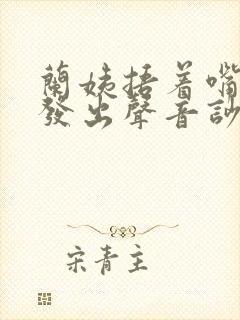 蘭姨捂着嘴
發出聲音訪
宋青主